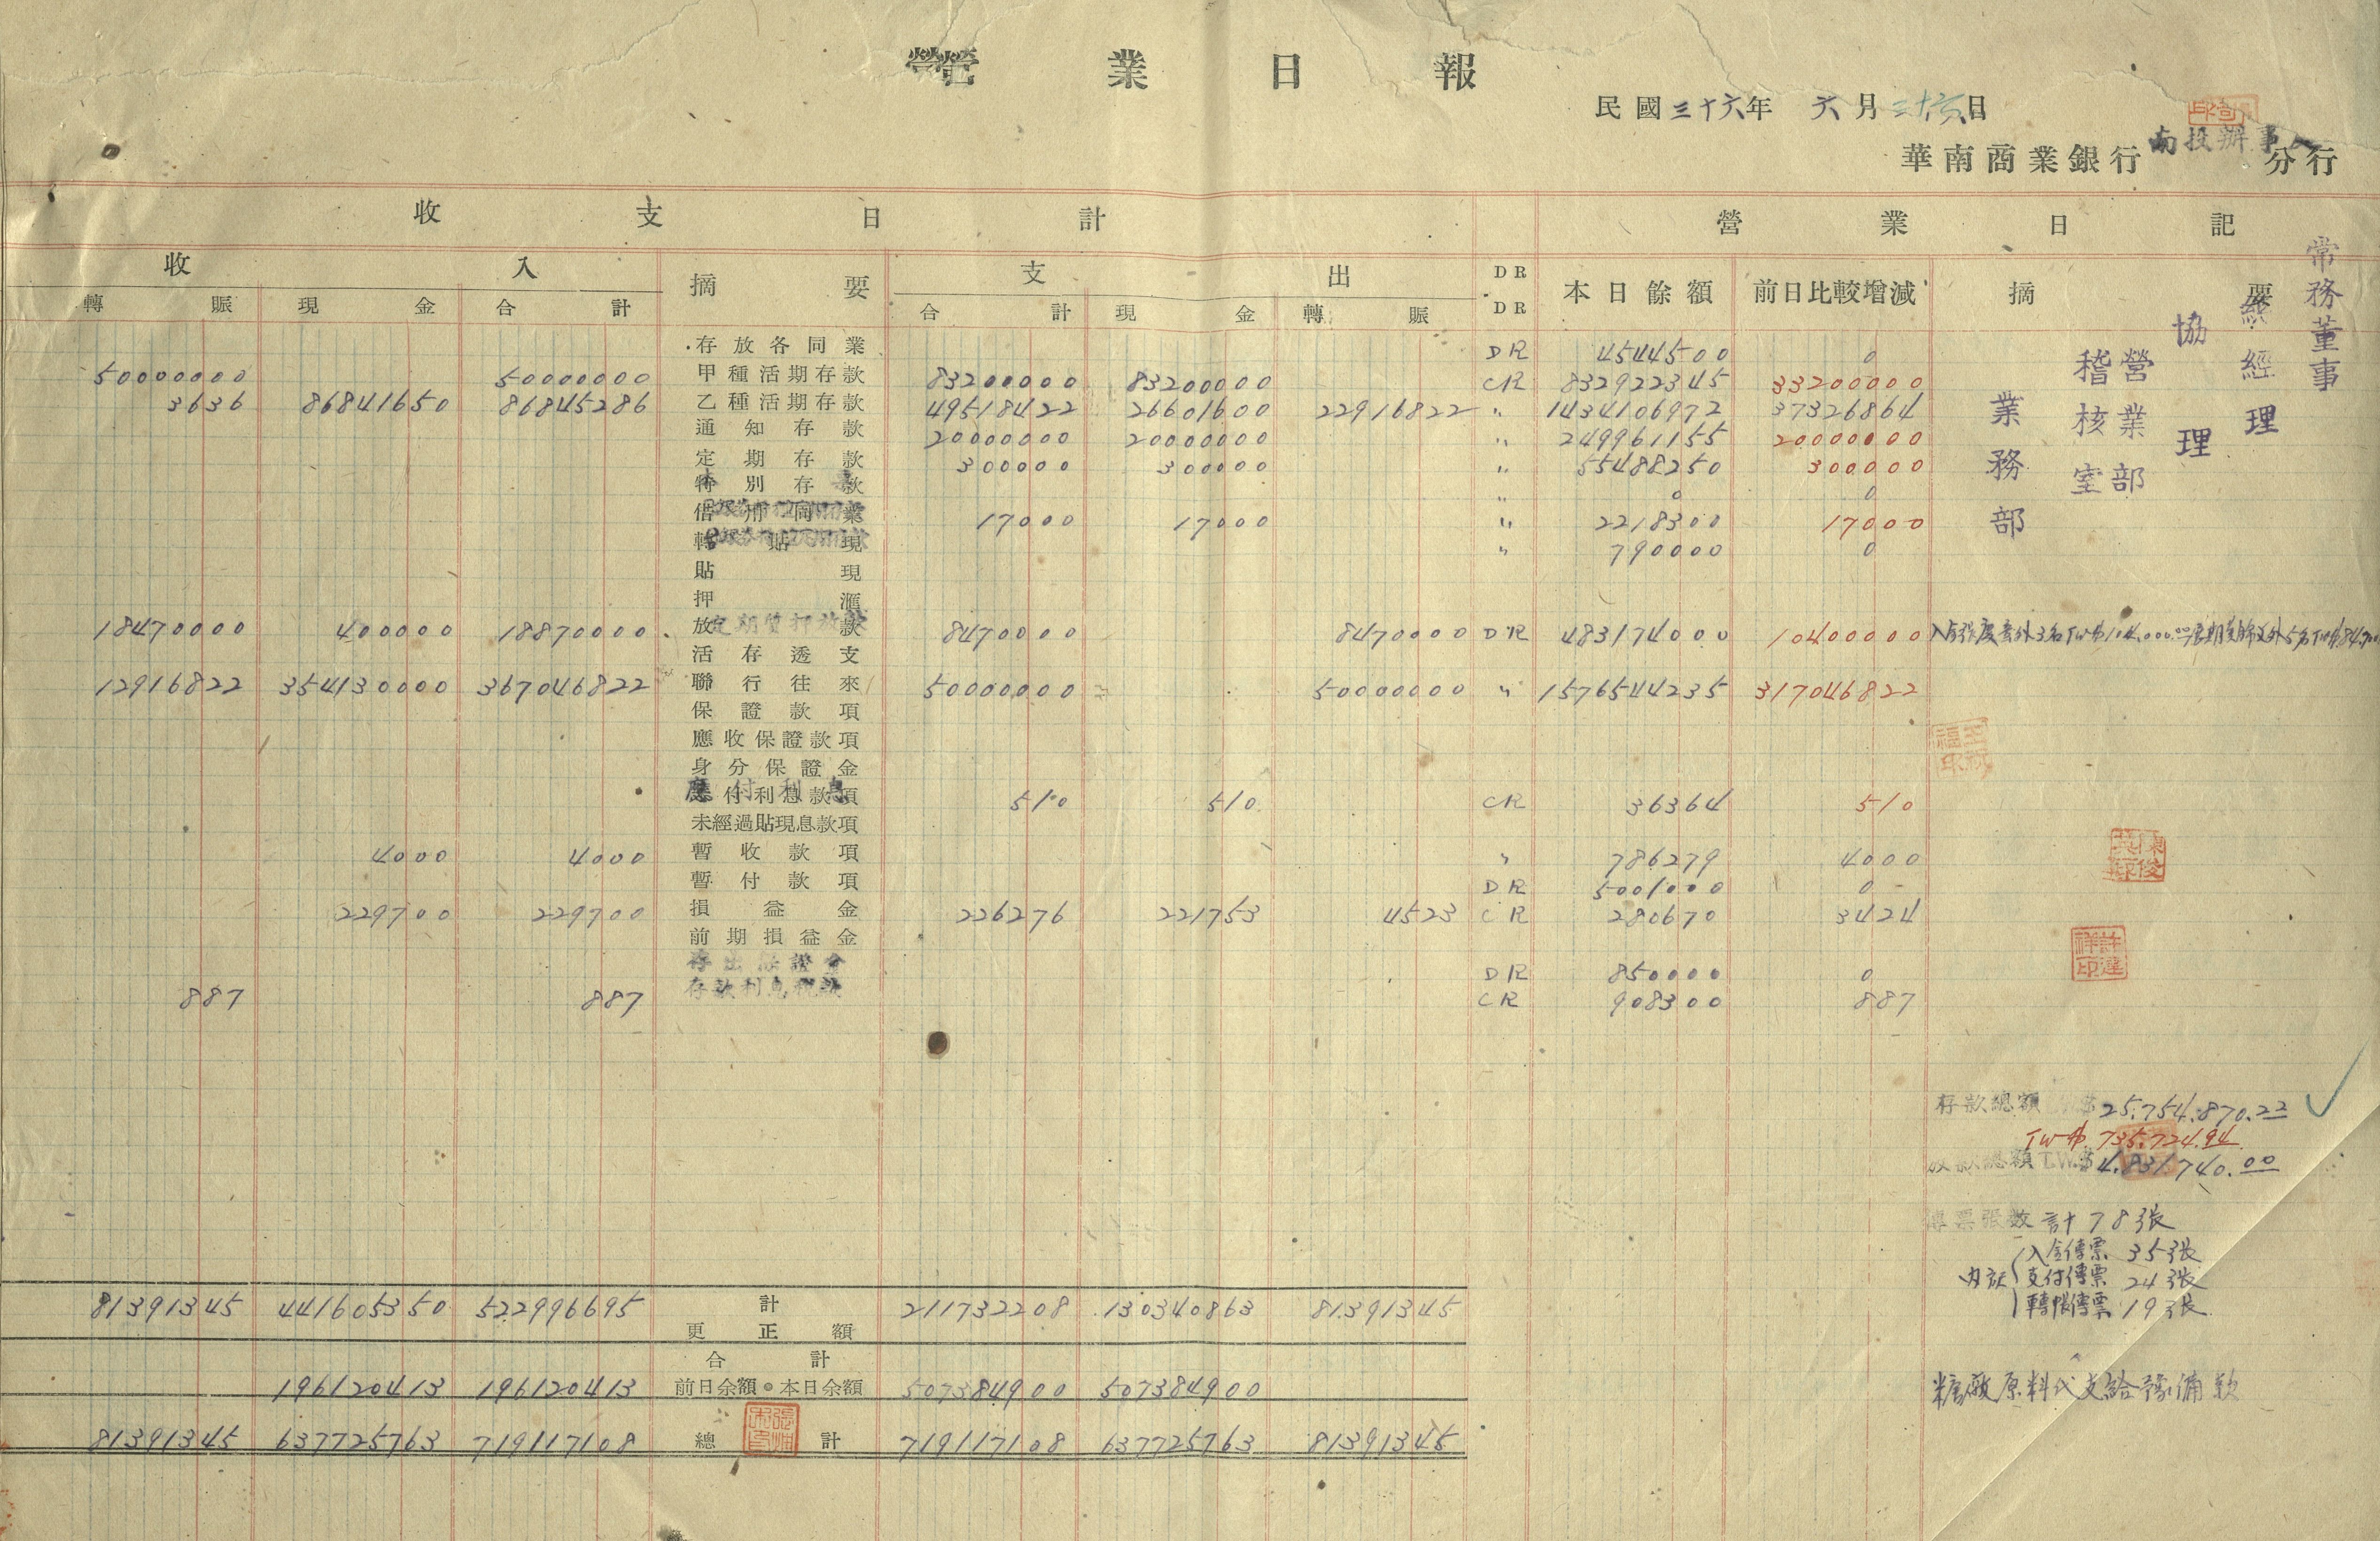 營業日報
民國三十六年 六月三十日
華南商業銀行 南投辦事 分行
收支日計 營業日記
收入 摘要 支出 DR 本日餘額 前日比較增減 摘要
轉賬 現金 合計 合計 現金 轉賬 DR
常務董事
總經理
協理
營業部
稽核室
業務部
存放各同業 DR 4544500 0
50000000 50000000 甲種活期存款 83200000 83200000 CR 832922345 33200000
3636 86841650 86845286 乙種活期存款 49518422 26601600 22916822 〃 1434106972 37326864
通知存款 20000000 20000000 〃 249961155 20000000
定期存款 300000 300000 〃 55488250 300000
特別存款 〃 0 0
借用同業 17000 17000 〃 2218300 17000
轉貼現 〃 790000 0
貼現
押滙
18470000 400000 18870000 放款 定期質押放款 8470000 8470000 DR 483174000 10400000
活存透支
12916822 354130000 367046822 聯行往來 50000000 50000000 〃 1576544235 317046822
保證款項
應收保證款項
身分保證金
應付利息 付利息款項 510 510 CR 36364 510
未經過貼現息款項
4000 4000 暫收款項 〃 786279 4000
暫付款項 DR 5001000 0
229700 229700 損益金 226276 221753 4523 CR 280670 3424
前期損益金
存出保證金 DR 850000 0
887 887 存款利息稅款 CR 908300 887
存款總額 25,754,870.22
TW$ 735,724.94
放款總額 T.W.$ 4,831,740.00
傳票張數 計78張
內訳
入金傳票 35張
支付傳票 24張
轉帳傳票 19張
81391345 441605350 522996695 計 211732208 130340863 81391345
更正額
合計
196120413 196120413 前日余額。本日余額 507384900 507384900
糖廠原料代支給予備款
81391345 637725763 719117108 總計 719117108 637725763 81391345